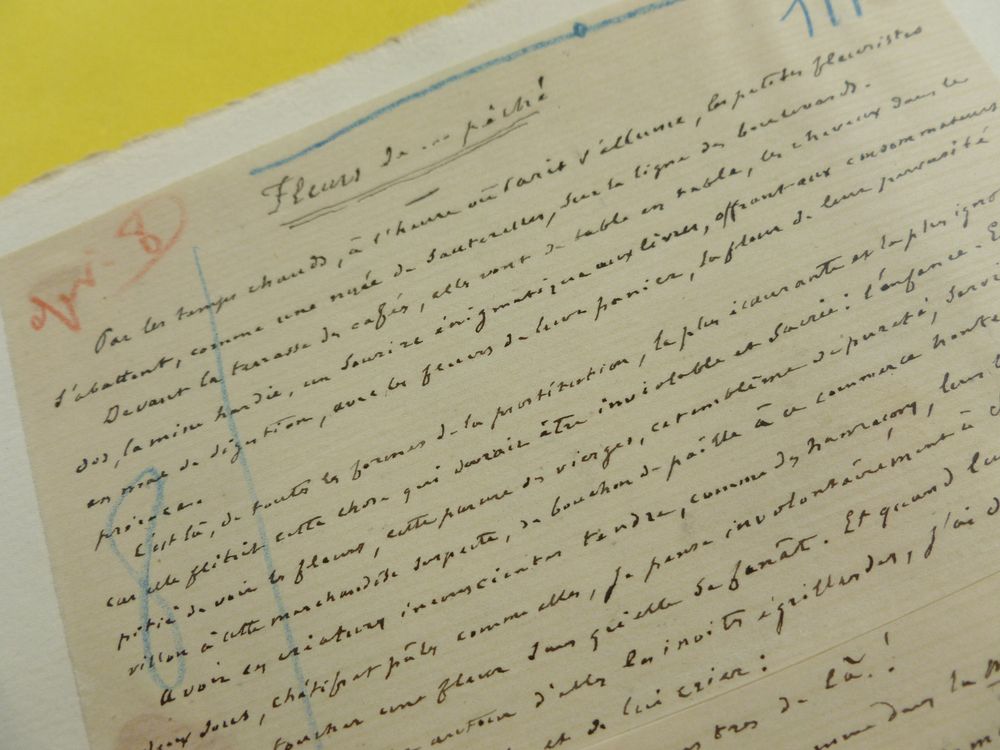 Fleurs de péché
Par les temps chauds, à l'heure où Paris s'allume, les petites fleuristes
s'abattent, comme une nuée de sauterelles, sur la ligne des boulevards.
Devant la terrasse des cafés, elles vont de table en table, les cheveux dans le
dos, la mine hardie, un sourire énigmatique aux lèvres, offrant aux consommateurs
en mal de digestion, avec les fleurs de leur panier, la fleur de leur
C'est là, de toutes les formes de la prostitution, la plus écœurante et la plus
car elle flétrit cette chose qui devrait être inviolable et sacrée : l'enfance.
pitié de voir les fleurs, cette parure des vierges, cet emblème de pureté, servir
à cette marchandise suspecte, de bouchon de paille à ce commerce
A voir ces créatures inconscientes tendre, comme des hameçons, leurs
doux, chétifs et pâles comme elles, je pense involontairement à
toucher une fleur sans qu'elle se fanât. Et quand
autour d'elles les invoits égrillardes, j'ai
et de lui crier :
de là !
dans la